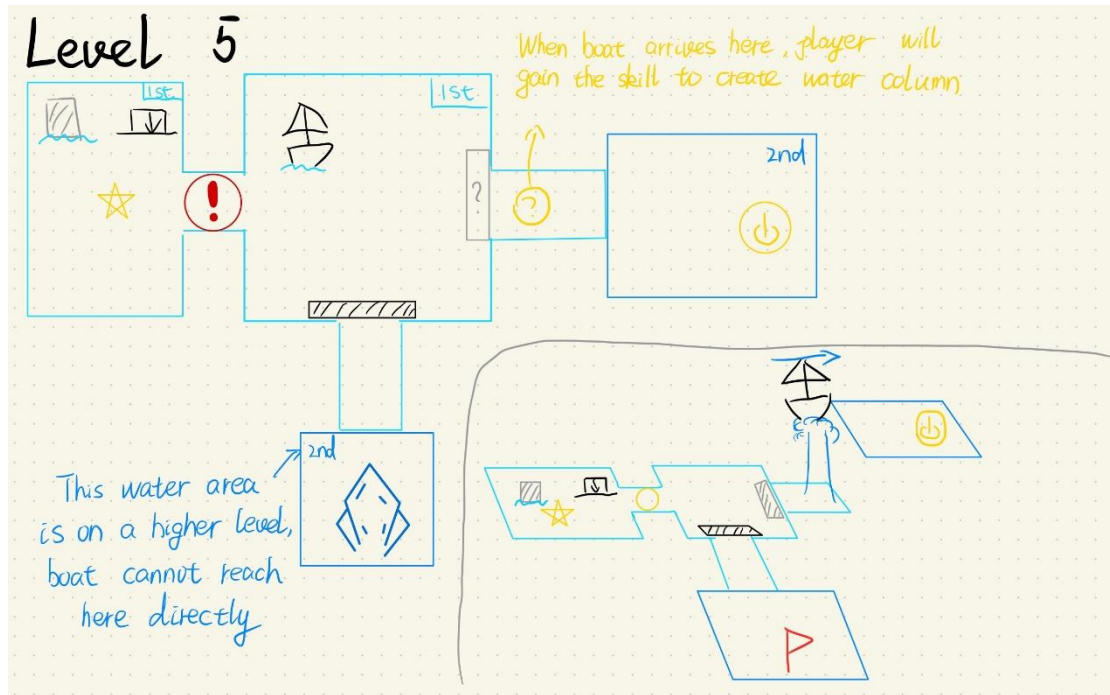 Level 5
When boat arrives here, player will
gain the skill to create water column
1st
1st
!
?
?
2nd
2nd
This water area
is on a higher level,
boat cannot reach
here directly